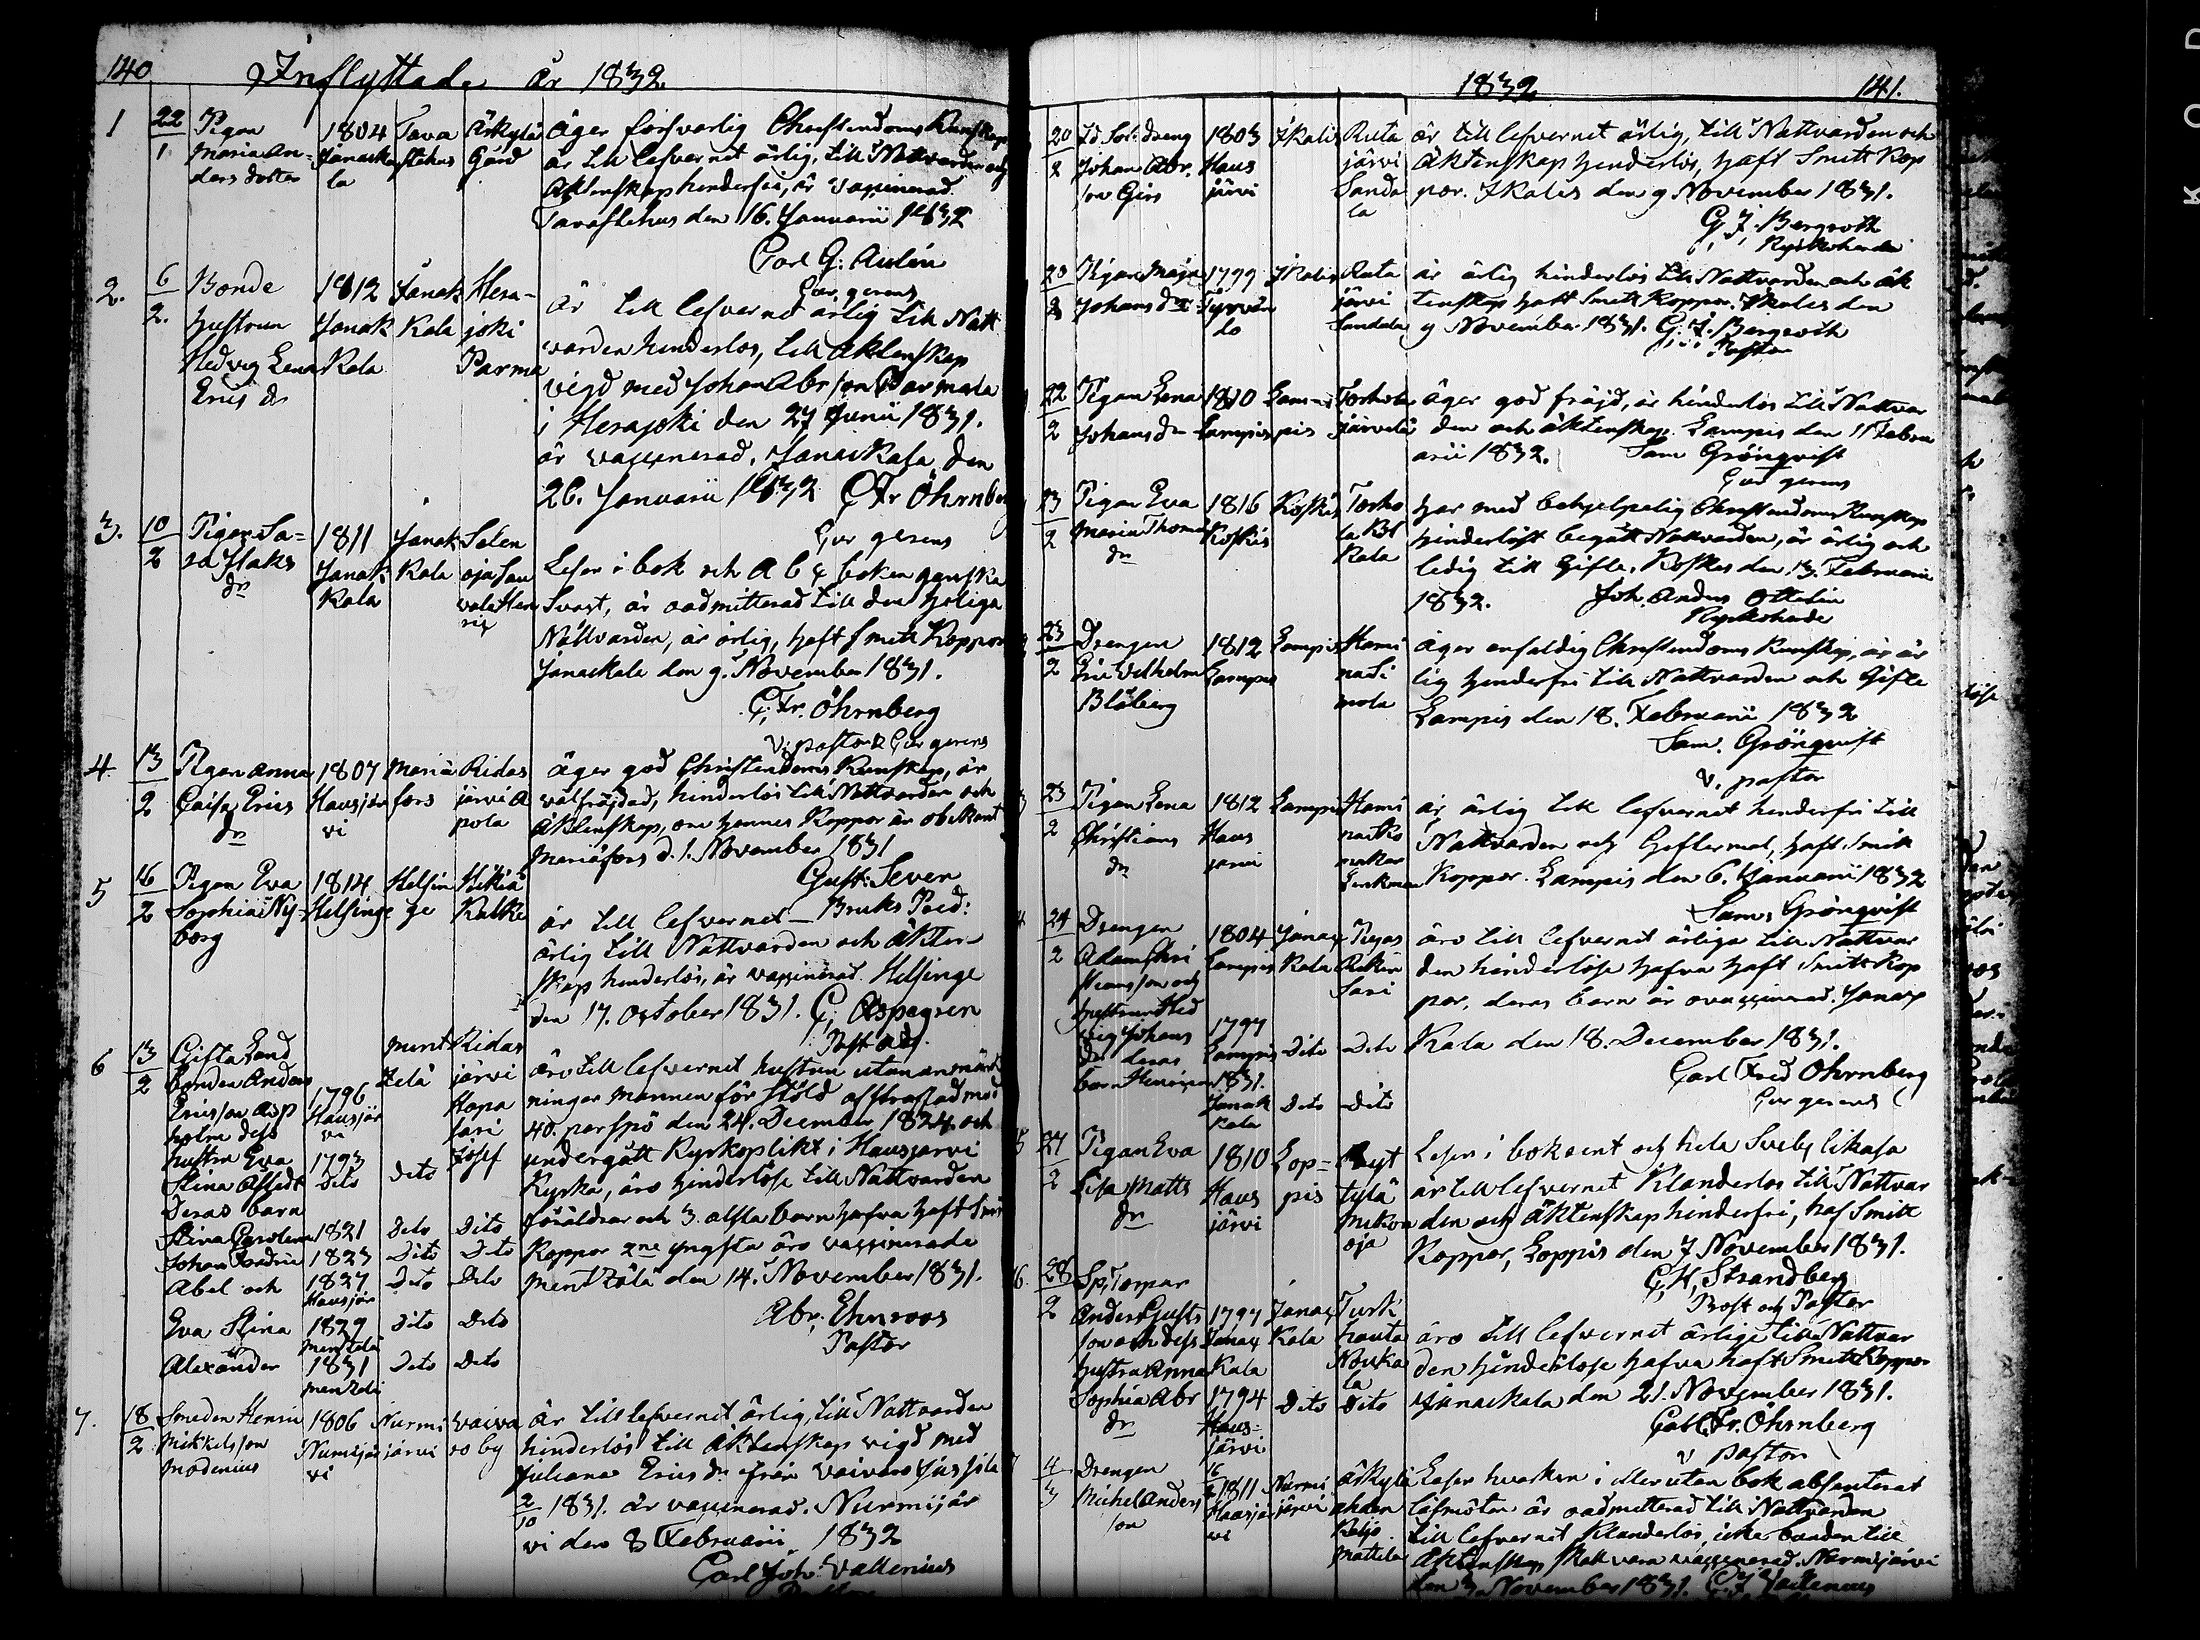 140
Inflyttade år 1832
1 22/1 Pigan Maria Andersdotter 1804 Janakkala Tavastehus Äikylä Gård
Äger försvarlig Christendoms Kunskap
är till lefvernet ärlig, till Nattvarden och
Äktenskap hinderfri, är vaccinerad.
Tavastehus den 16. Januarii 1832
Carl G. Aulin
Gur gerens
2. 6/2. Bonde hustrun Hedvig Lena Erics dr 1812 Janakkala Janakkala Herajoki Parma
är till lefvernet ärlig till Natt
varden hinderlös, till äktenskap
vigd med Johan Abr son Parmala
i Herajoki den 27 Junii 1831.
är vaccinerad, Janackala den
26. Januarii 1832 C Fr Öhrnberg
Gur gerens
3. 10/2 Pigan Sara Isaks dr 1811 Janakkala Janakkala
Läser i bok och A b c boken ganska
Svagt, är oadmitterad till den heliga
Nattvarden, är ärlig, haft Smitt Koppor
Janackala den 9. November 1831.
C. Fr. Öhrnberg
V. pastor & Gur gerens
4. 13/2 Pigan Anna Caisa Erics dr 1807 Hausjärvi Mariäfors Ridasjärvi Apola
äger god Christendoms Kunskap, är
välfräjdad, hinderlös till Nattvarden och
Äktenskap, om hennes Koppor är obekant
Mariäfors d. 1. November 1831
Gust: Seven
Bruks Pred:
5 16/2 Pigan Eva Sophia Nyborg 1814 Helsinge Helsinge Hikiä Kalke
är till lefvernet
ärlig till Nattvarden och Äkten-
skap hinderlös, är vaccinerad. Helsinge
den 17. October 1831. C. Aspegren
Past adj.
6 13/2 Gifta Land bonden Anders Ericsson Aspholm dess hustru Eva Stina Deras barn Mentzelä Ridasjärvi Hapasari Josef
1796 Hausjärvi
1793 Dito Dito
Stina Carolina 1821 Dito Dito
Johan 1823 Dito Dito
Abel och 1827 Hausjär Dito Dito
Eva Stina 1829 Mentzelä Dito Dito
Alexander 1831 Mentzelä Dito Dito
äro till lefvernet hustrun utan anmärk
ningar mannen för stöld afstraffad med
40. par spö den 24. December 1824 och
undergått Kyrkoplikt i Hausjärvi
Kyrka, äro hinderlöse till Nattvarden
föräldrar och 3. älsta barn hafva haft Smit
Koppor 2ne yngsta äro vaccinerade
Mentzälä den 14. November 1831.
Abr. Ehnroos
Pastor
7. 18/2 Smeden Henric Mikkelsson Modenius 1806 Nurmijärvi Nurmijärvi Vaivaro by
är till lefvernet ärlig, till Nattvarden
hinderlös till Äktenskap vigd med
Juliana Erics dr från Vaivaro Jussila
2/10 1831. är vaccinerad. Nurmijär
vi den 8 Februarii 1832
Carl Joh: Vallenius
Pastor
1832
141.
20/2 Johan Abr. son Girs 1803 Hausjärvi Ikalis Rutajärvi Sandala
är till lefvernet ärlig, till Nattvarden och
Äktenskap hinderlös, haft Smitt Kop
por. Ikalis den 9 November 1831.
G. J. Bergroth
Kyrkoherde
20/2 Pigan Maja Johans dr 1799 Ikalis Rutajärvi Sandala
är ärlig hinderlös till Nattvarden och äk
tenskap haft Smitt Koppor. Ikalis den
9 November 1831. G. J. Bergroth
Pastor
22/2 Pigan Lena Johans dr 1810 Lampis Lampis Torhola Järvelä
äger god fräjd, är hinderlös till Nattvar
den och äktenskap. Lampis den 11 Febru
arii 1832. Sam Grönqvist
Gur gerens
23/2 Pigan Eva Maria Thomas dr 1816 Koskis Koskis Torhola
har med behjelpelig Christendoms Kunskap
hinderlöst begått Nattvarden, är ärlig och
ledig till Gifte. Koskis den 13. Februarii
1832. Joh. Andrs Ottelin
Kyrkoherde
23/2 Drengen Eric Wilhelm Blåberg 1812 Lampis Lampis
äger enfaldig Christendoms Kunskap, är är
lig hinderfri till Nattvarden och Gifte
Lampis den 18. Februarii 1832
Sam. Grönqvist
V. pastor
23/2 Pigan Lena Christians dr 1812 Hausjärvi Lampis
är ärlig till lefvernet hinderfri till
Nattvarden och Giftermål, haft Smitt
Koppor. Lampis den 6. Januarii 1832
Sam. Grönqvist
24/2 Drengen Adam Christiansson och hustrun Hedvig Johans dr deras barn Henric
1804 Lampis Janackala
1797 Lampis Dito Dito
1831. Janakkala Dito Dito
äro till lefvernet ärliga till Nattvar
den hinderlöse hafva haft Smitt Kop
por, deras barn är ovaccinerad. Janac
Kala den 18. December 1831.
Carl Fred Öhrnberg
Gur gerens
27/2 Pigan Eva Lisa Matts dr 1810 Hausjärvi Loppis Ryttylä Mikonoja
Läser i bok rent och hela Svebelikasa
är till lefvernet Klanderlös till Nattvar
den och äktenskap hinderfri, haf Smitt
Koppor, Loppis den 7 November 1831.
C. H. Strandberg
Prost och Pastor
28/2 Sp: Torpar Anders Gustsson och dess hustru Anna Sophia Abr dr
1797 Janackala Janackala Turkhauta Noukala
1794 Hausjärvi Dito Dito
äro till lefvernet ärlige till Nattvar
den hinderlöse hafva haft Smitt Koppor
Janackala den 21. November 1831.
Carl Fr. Öhrnberg
v pastor
4/3 Drengen Michel Andersson 1811 Hausjärvi Nurmijärvi Mattila
Läser hvarken i eller utan bok absenterat
läsmöten är oadmitterad till Nattvarden
till lefvernet Klanderlös, icke bunden till
Äktenskap skall vara vaccinerad. Nurmijärvi
den 3. November 1831. C J Vallenius